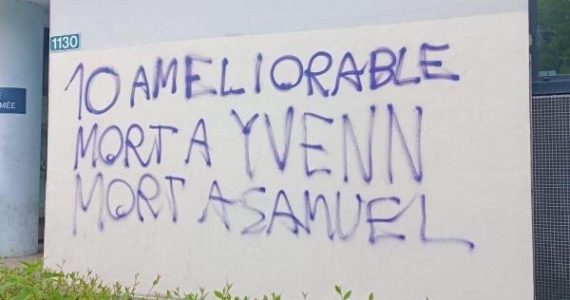 1130
MÉE
10 AMELIORABLE
MORT A YVENN
MORT A SAMUEL